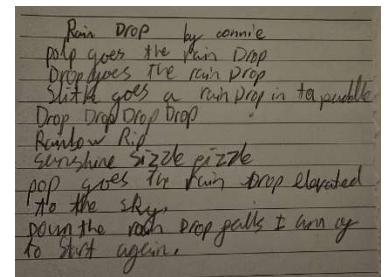 Rain Drop by connie
polp goes the rain Drop
Drop goes The rain Drop
goes a rain Drop in to puddle
Drop Drop Drop Drop
Rainbow Rip
sunshine Sizzle pizzle
pop goes The rain Drop elavated
to the sky.
Down the rain Drop falls I am
to start again.